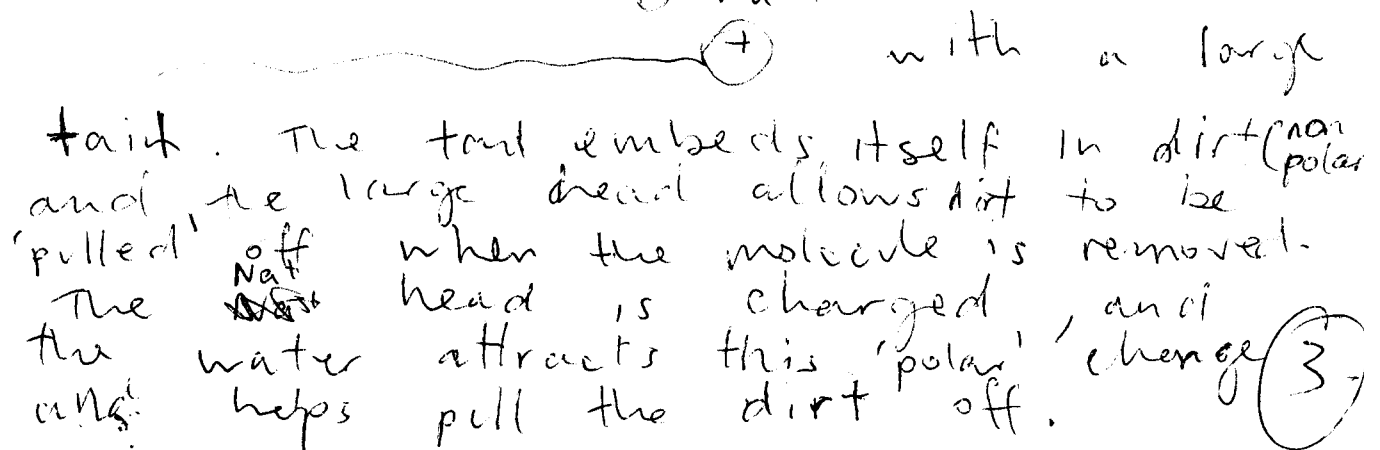 + with a large
tail. The tail embeds itself in dirt (non polar
and the large head allows dirt to be
'pulled' off when the molecule is removed.
The Na+ head is charged, and
the water attracts this 'polar' charge
and helps pull the dirt off.
3